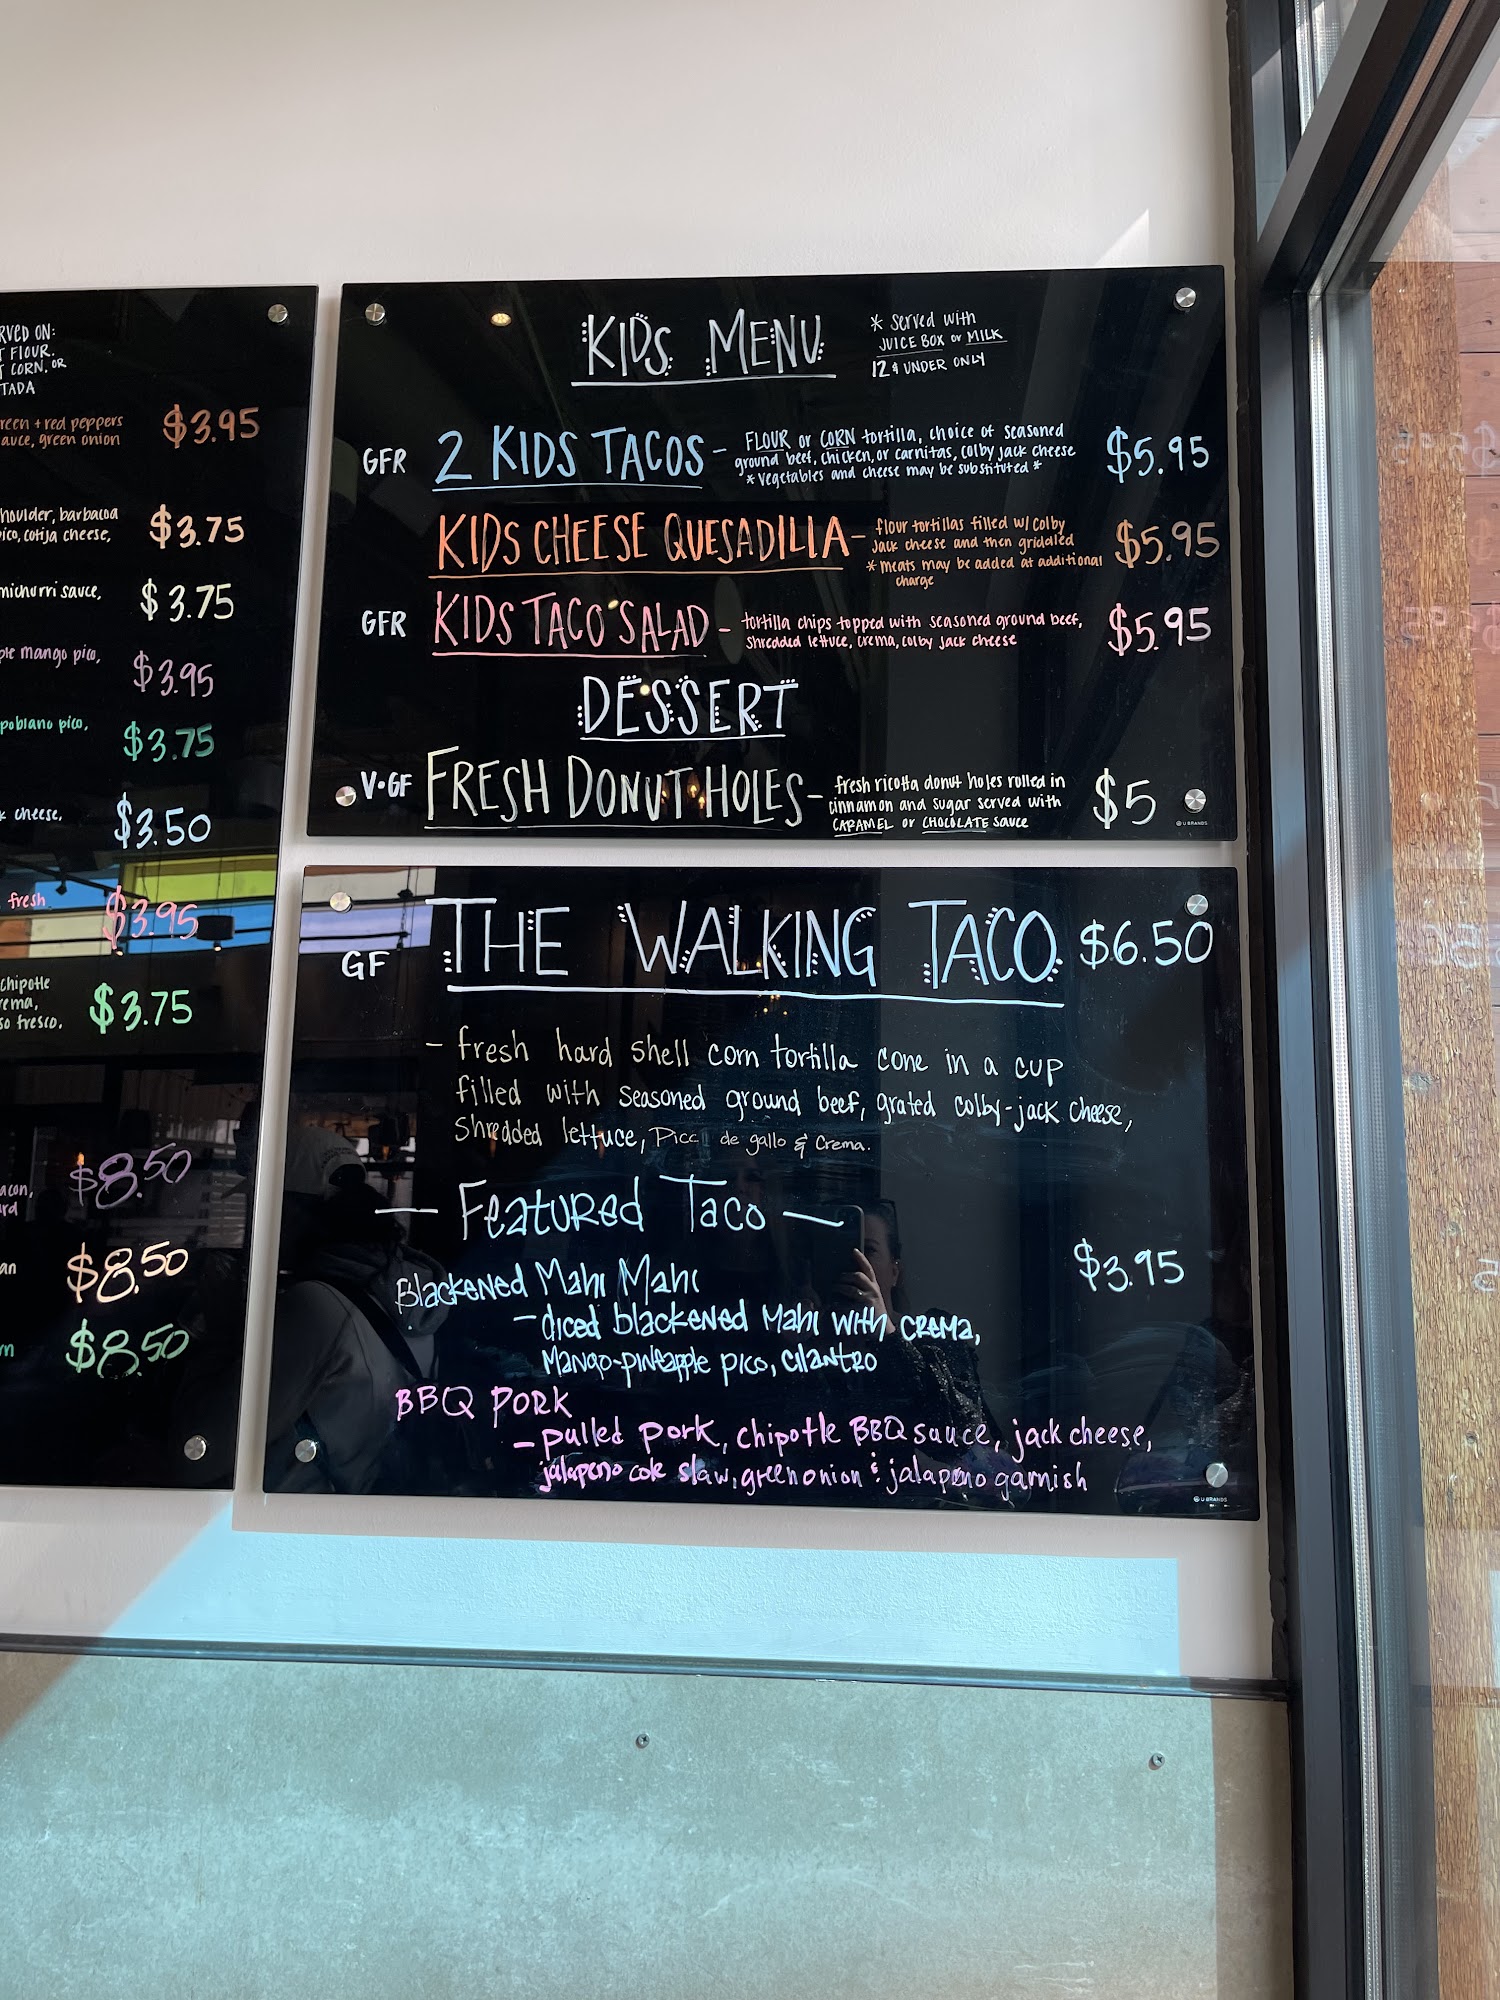 RVED ON:
T FLOUR.
T CORN. OR
TADA
reen + red peppers
auce, green onion
$3.95
houlder, barbacoa
ico, cotija cheese,
$3.75
michurri sauce,
$3.75
ple mango pico,
$3.95
poblano pico,
$3.75
k cheese,
$3.50
fresh
$3.95
chipotle
rema,
so fresco.
$3.75
acon,
rd
$8.50
an
$8.50
rn
$8.50
KIDS MENU
* Served with
JUICE BOX or MILK
12 & UNDER ONLY
GFR 2 KIDS TACOS - FLOUR or CORN tortilla, choice of seasoned
ground beef, chicken, or carnitas, colby jack cheese
* Vegetables and cheese may be substituted *
$5.95
KIDS CHEESE QUESADILLA - flour tortillas filled w/ colby
jack cheese and then gridaled
* Meats may be added at additional
charge
$5.95
GFR KIDS TACO SALAD - tortilla chips topped with seasoned ground beef,
shredded lettuce, crema, colby jack cheese
$5.95
DESSERT
V•GF FRESH DONUT HOLES - fresh ricotta donut holes rolled in
cinnamon and sugar served with
CARAMEL or CHOCOLATE sauce
$5
U BRANDS
GF THE WALKING TACO $6.50
- fresh hard shell corn tortilla cone in a cup
filled with seasoned ground beef, grated colby-jack cheese,
shredded lettuce, Pico de gallo & Crema.
— Featured Taco —
Blackened Mahi Mahi $3.95
- diced blackened Mahi with crema,
Mango-pineapple pico, cilantro
BBQ PORK
- pulled pork, chipotle BBQ sauce, jack cheese,
jalapeno cole slaw, green onion & jalapeno garnish
U BRANDS